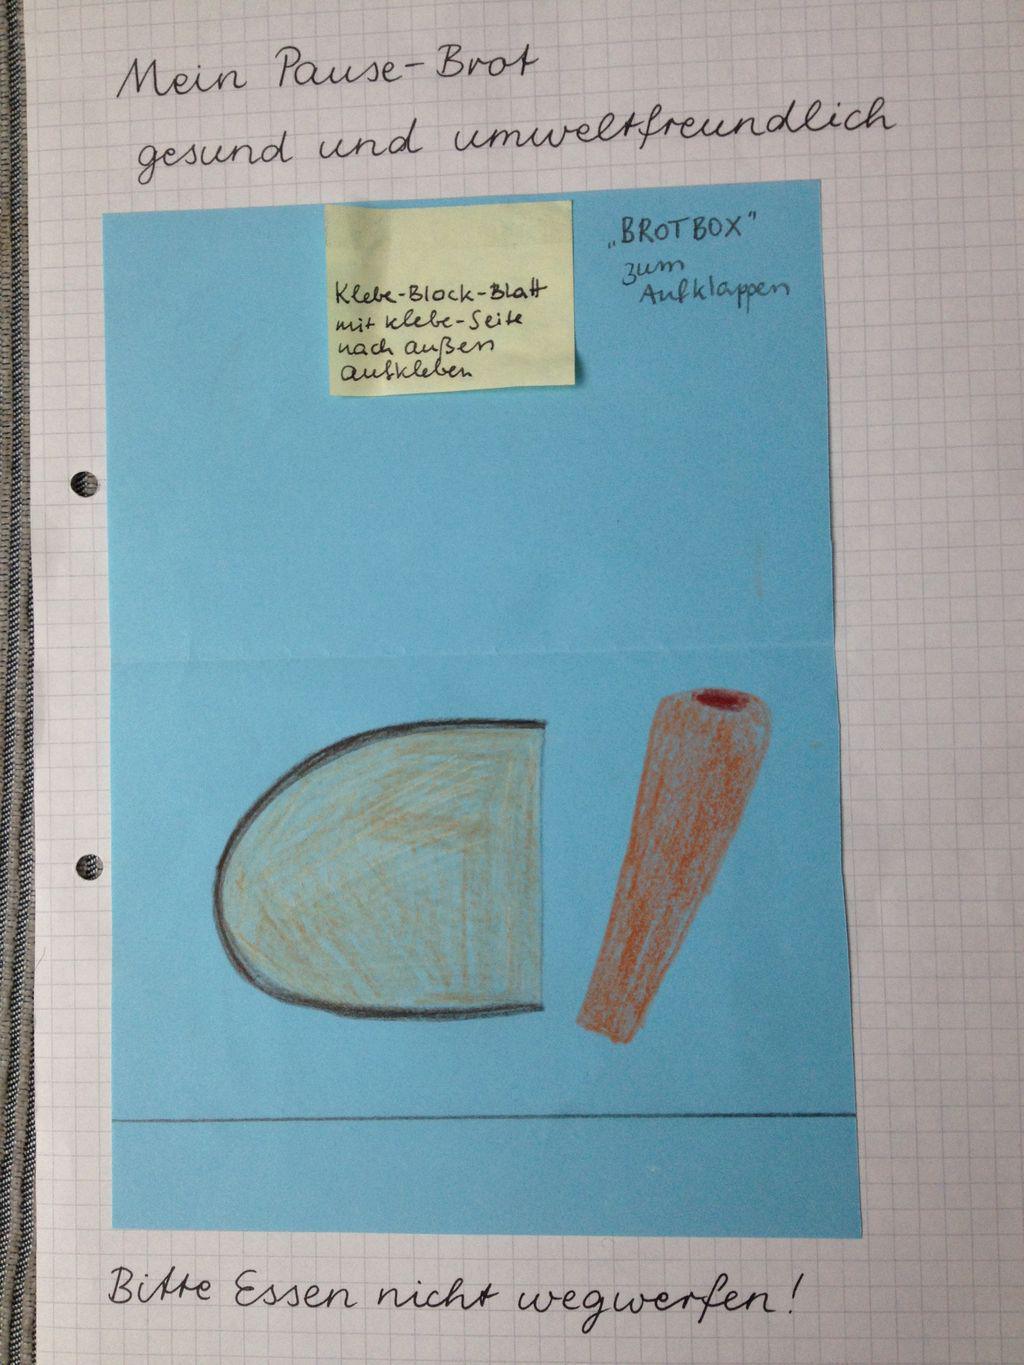 Mein Pause-Brot
gesund und umweltfreundlich
Klebe-Block-Blatt
mit Klebe-Seite
nach außen
aufkleben
„BROTBOX"
zum
Aufklappen
Bitte Essen nicht wegwerfen!